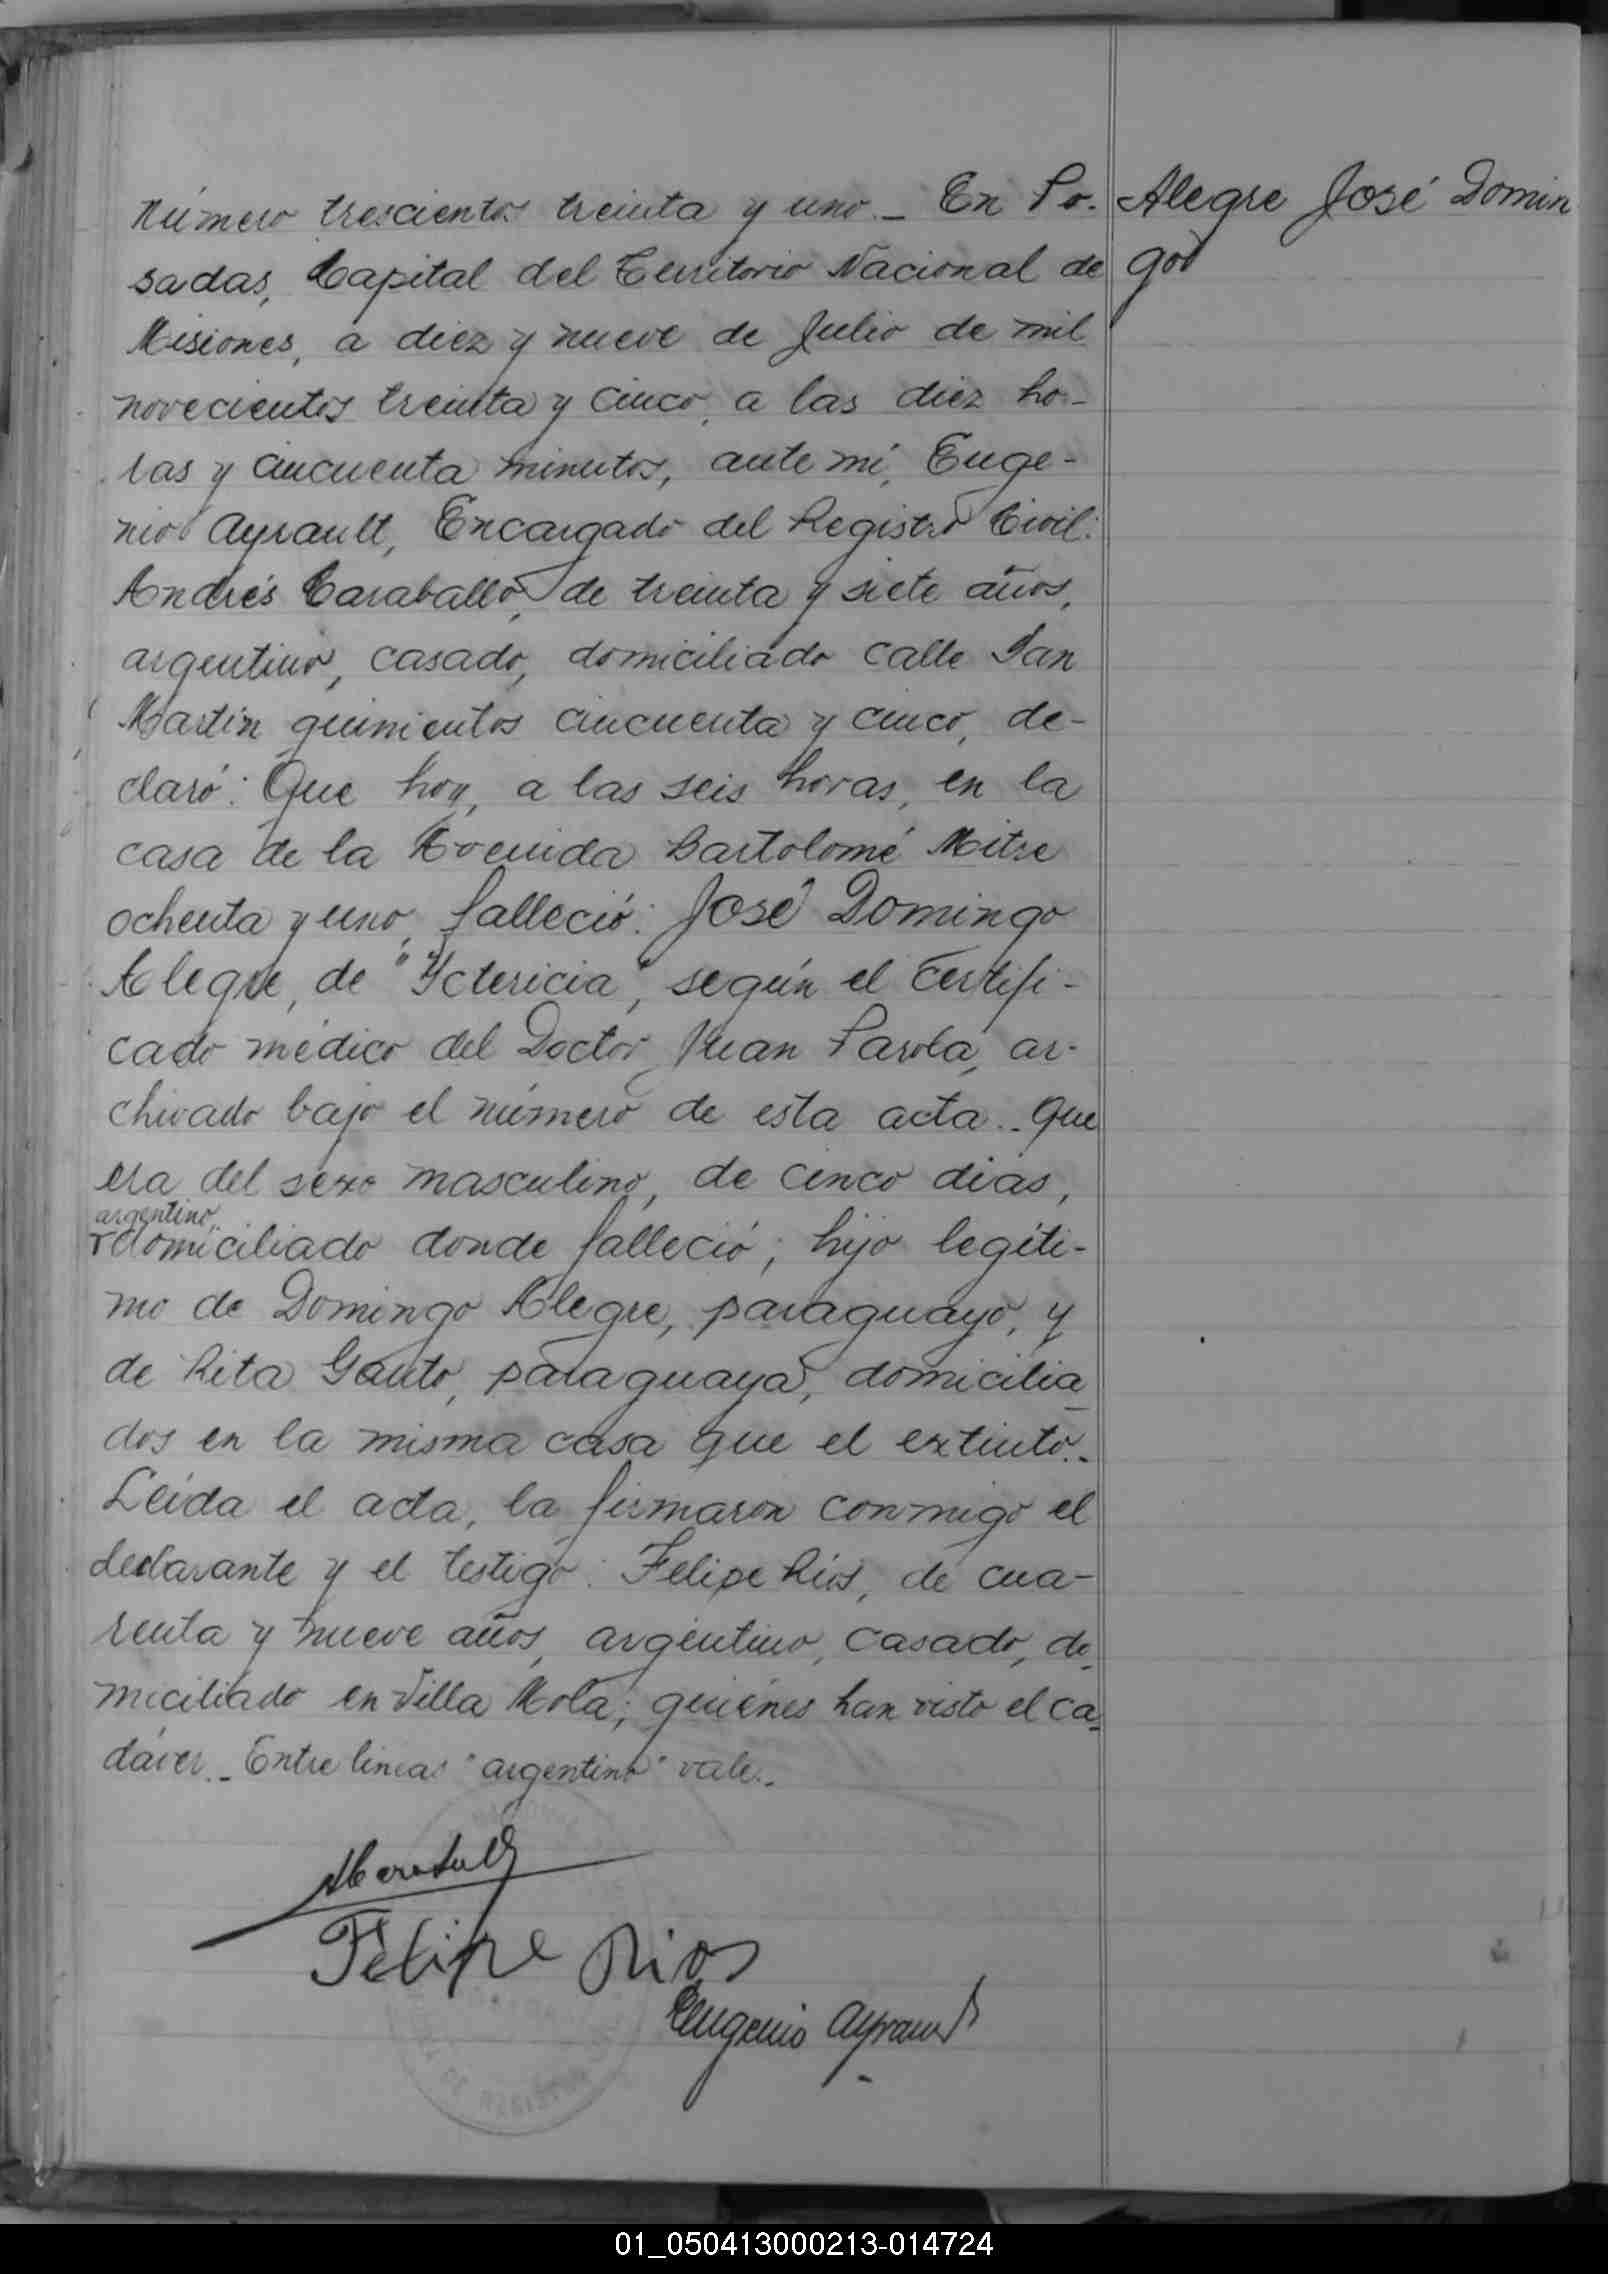 Alegre José Domin
go
Número trescientos treinta y uno._ En Po-
sadas, Capital del Territorio Nacional de
Misiones, a diez y nueve de Julio de mil
novecientos treinta y cinco, a las diez ho-
ras y cincuenta minutos, ante mí, Euge-
nio Ayrault, Encargado del Registro Civil:
Andrés Caraballo, de treinta y siete años,
argentino, casado, domiciliado calle San
Martín quinientos cincuenta y cinco, de-
claró: Que hoy, a las seis horas, en la
casa de la Avenida Bartolomé Mitre
ochenta y uno, falleció: José Domingo
Alegre, de "Yctericia", según el certifi-
cado médico del Doctor Juan Parola, ar-
chivado bajo el número de esta acta._ Que
era del sexo masculino, de cinco días,
argentino,
domiciliado donde falleció; hijo legíti-
mo de Domingo Alegre, paraguayo, y
de Rita Gauto, paraguaya, domicilia_
dos en la misma casa que el extinto._
Leída el acta, la firmaron conmigo el
declarante y el testigo: Felipe Ríos, de cua-
renta y nueve años, argentino, casado, do_
miciliado en Villa Mola; quiénes han visto el ca_
dáver._ Entre líneas "argentino" vale._
Felipe Rios
Eugenio Ayrault
01_050413000213-014724